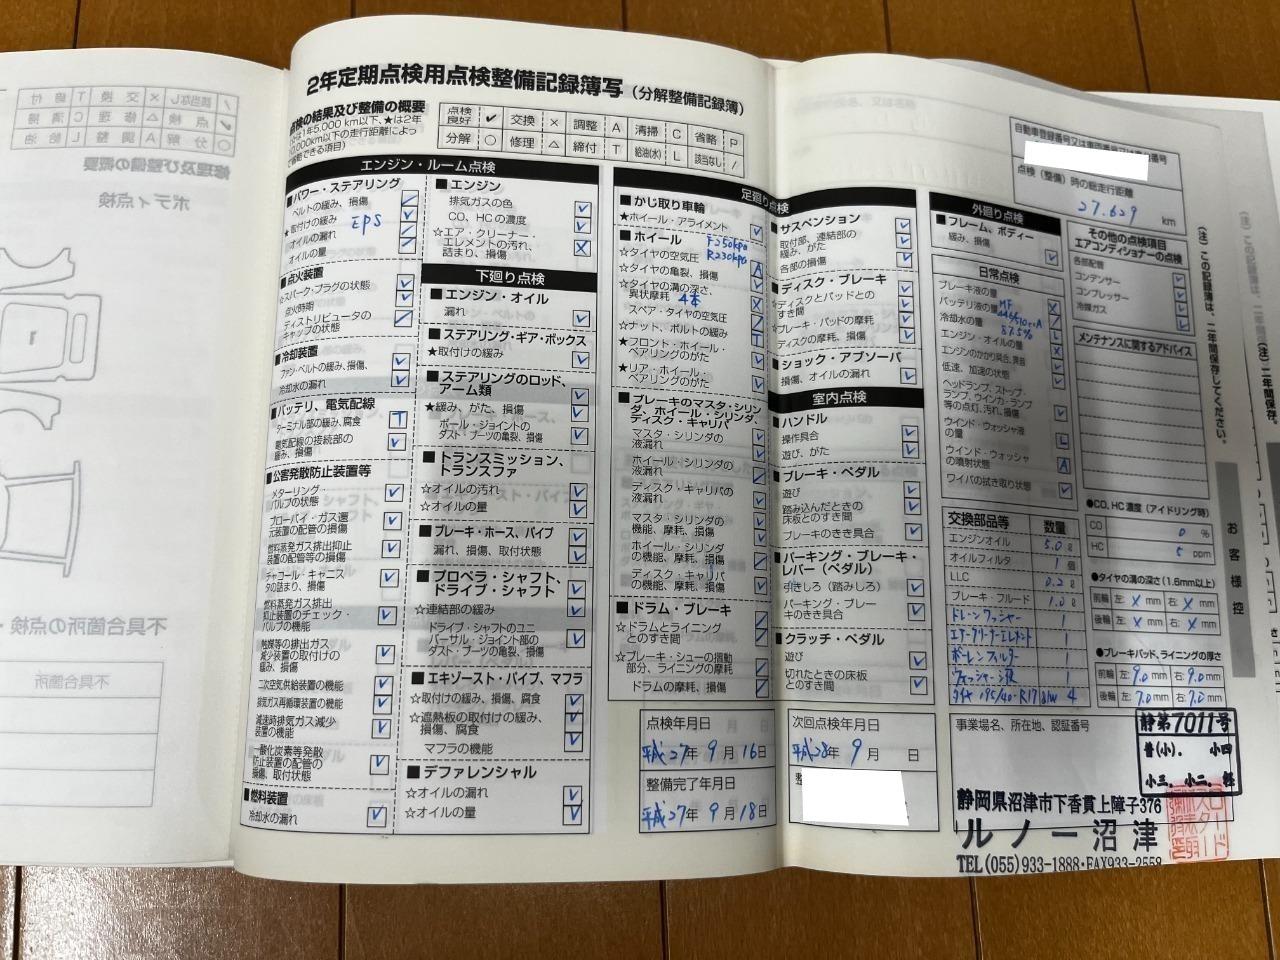 2年定期点検用点検整備記録簿写(分解整備記録簿)
点検の結果及び整備の概要
点検良好 ✓ 交換 × 調整 A 清掃 C 省略 P
分解 ○ 修理 △ 締付 T 給油(水) L 該当なし /
エンジン・ルーム点検
■パワー・ステアリング
ベルトの緩み、損傷
★取付けの緩み
EPS
オイルの漏れ
オイルの量
■点火装置
☆スパーク・プラグの状態
点火時期
ディストリビュータの
キャップの状態
■冷却装置
ファン・ベルトの緩み、損傷、
冷却水の漏れ
■バッテリ、電気配線
ターミナル部の緩み、腐食 T
電気配線の接続部の
緩み、損傷
■公害発散防止装置等
メターリング・
バルブの状態
ブローバイ・ガス還
元装置の配管の損傷
燃料蒸発ガス排出抑止
装置の配管等の損傷
チャコール・キャニス
タの詰まり、損傷
燃料蒸発ガス排出
抑止装置のチェック・
バルブの機能
触媒等の排出ガス
減少装置の取付けの
緩み、損傷
二次空気供給装置の機能
排気ガス再循環装置の機能
減速時排気ガス減少
装置の機能
一酸化炭素等発散
防止装置の配管の
損傷、取付状態
■燃料装置
冷却水の漏れ
■エンジン
排気ガスの色
CO、HCの濃度
☆エア・クリーナー・
エレメントの汚れ、
詰まり、損傷
下廻り点検
■エンジン・オイル
漏れ
■ステアリング・ギア・ボックス
★取付けの緩み
■ステアリングのロッド、
アーム類
★緩み、がた、損傷
ボール・ジョイントの
ダスト・ブーツの亀裂、損傷
■トランスミッション、
トランスファ
☆オイルの汚れ
☆オイルの量
■ブレーキ・ホース、パイプ
漏れ、損傷、取付状態
■プロペラ・シャフト、
ドライブ・シャフト
☆連結部の緩み
ドライブ・シャフトのユニ
バーサル・ジョイント部の
ダスト・ブーツの亀裂、損傷
■エキゾースト・パイプ、マフラ
☆取付けの緩み、損傷、腐食
☆遮熱板の取付けの緩み、
損傷、腐食
マフラの機能
■デファレンシャル
☆オイルの漏れ
☆オイルの量
足廻り点検
■かじ取り車輪
★ホイール・アライメント
■ホイール
F250kpa
R230kpa
☆タイヤの空気圧
☆タイヤの亀裂、損傷
☆タイヤの溝の深さ、
異状摩耗 4本
スペア・タイヤの空気圧
☆ナット、ボルトの緩み
★フロント・ホイール・
ベアリングのがた
★リア・ホイール・
ベアリングのがた
■ブレーキのマスタ・シリン
ダ、ホイール・シリンダ、
ディスク・キャリパ
マスタ・シリンダの
液漏れ
ホイール・シリンダの
液漏れ
ディスク・キャリパの
液漏れ
マスタ・シリンダの
機能、摩耗、損傷
ホイール・シリンダ
の機能、摩耗、損傷
ディスク・キャリパ
の機能、摩耗、損傷
■ドラム・ブレーキ
☆ドラムとライニング
とのすき間
☆ブレーキ・シューの摺動
部分、ライニングの摩耗
ドラムの摩耗、損傷
■サスペンション
取付部、連結部の
緩み、がた
各部の損傷
■ディスク・ブレーキ
☆ディスクとパッドとの
すき間
☆ブレーキ・パッドの摩耗
ディスクの摩耗、損傷
■ショック・アブソーバ
損傷、オイルの漏れ
室内点検
■ハンドル
操作具合
遊び、がた
■ブレーキ・ペダル
遊び
踏み込んだときの
床板とのすき間
ブレーキのきき具合
■パーキング・ブレーキ・
レバー(ペダル)
引きしろ(踏みしろ)
パーキング・ブレー
キのきき具合
■クラッチ・ペダル
遊び
切れたときの床板
とのすき間
点検年月日
平成27年9月16日
整備完了年月日
平成27年9月18日
次回点検年月日
平成28年9月 日
外廻り点検
■フレーム、ボディー
緩み、損傷
日常点検
ブレーキ液の量
バッテリ液の量 MF
冷却水の量
87.5%
エンジン・オイルの量
エンジンのかかり具合、異音
低速、加速の状態
ヘッドランプ、ストップ、
ランプ、ウインカ・ランプ
等の点灯、汚れ、損傷
ウインド・ウォッシャ液
の量 L
ウインド・ウォッシャ
の噴射状態 A
ワイパの拭き取り状態
交換部品等 数量
エンジンオイル 5.0ℓ
オイルフィルタ 1個
LLC 0.2ℓ
ブレーキ・フルード 1.0ℓ
ドレーンワッシャー 1
エアークリーナーエレメント 1
ポーレンフィルター 1
ウォッシャー液 1
タイヤ 195/40-R17 4
自動車登録番号又は車両番号又は車台番号
点検(整備)時の総走行距離
27.629 km
その他の点検項目
エアコンディショナーの点検
各部配管
コンデンサー
コンプレッサー
冷媒ガス
メンテナンスに関するアドバイス
●CO、HC濃度(アイドリング時)
CO 0 %
HC 5 ppm
●タイヤの溝の深さ(1.6mm以上)
前輪 左: × mm 右: × mm
後輪 左: × mm 右: × mm
●ブレーキパッド、ライニングの厚さ
前輪 左: 9.0 mm 右: 9.0 mm
後輪 左: 7.0 mm 右: 7.0 mm
事業場名、所在地、認証番号
静第7011号
普(小). 小四
小三. 小二. 軽
静岡県沼津市下香貫上障子376
ルノー沼津
TEL(055)933-1888・FAX933-2558
(注)この記録簿は、二年間保存してください。
お客様控
修理及び整備の概要
ボディ点検
不具合箇所の点検・
不具合箇所